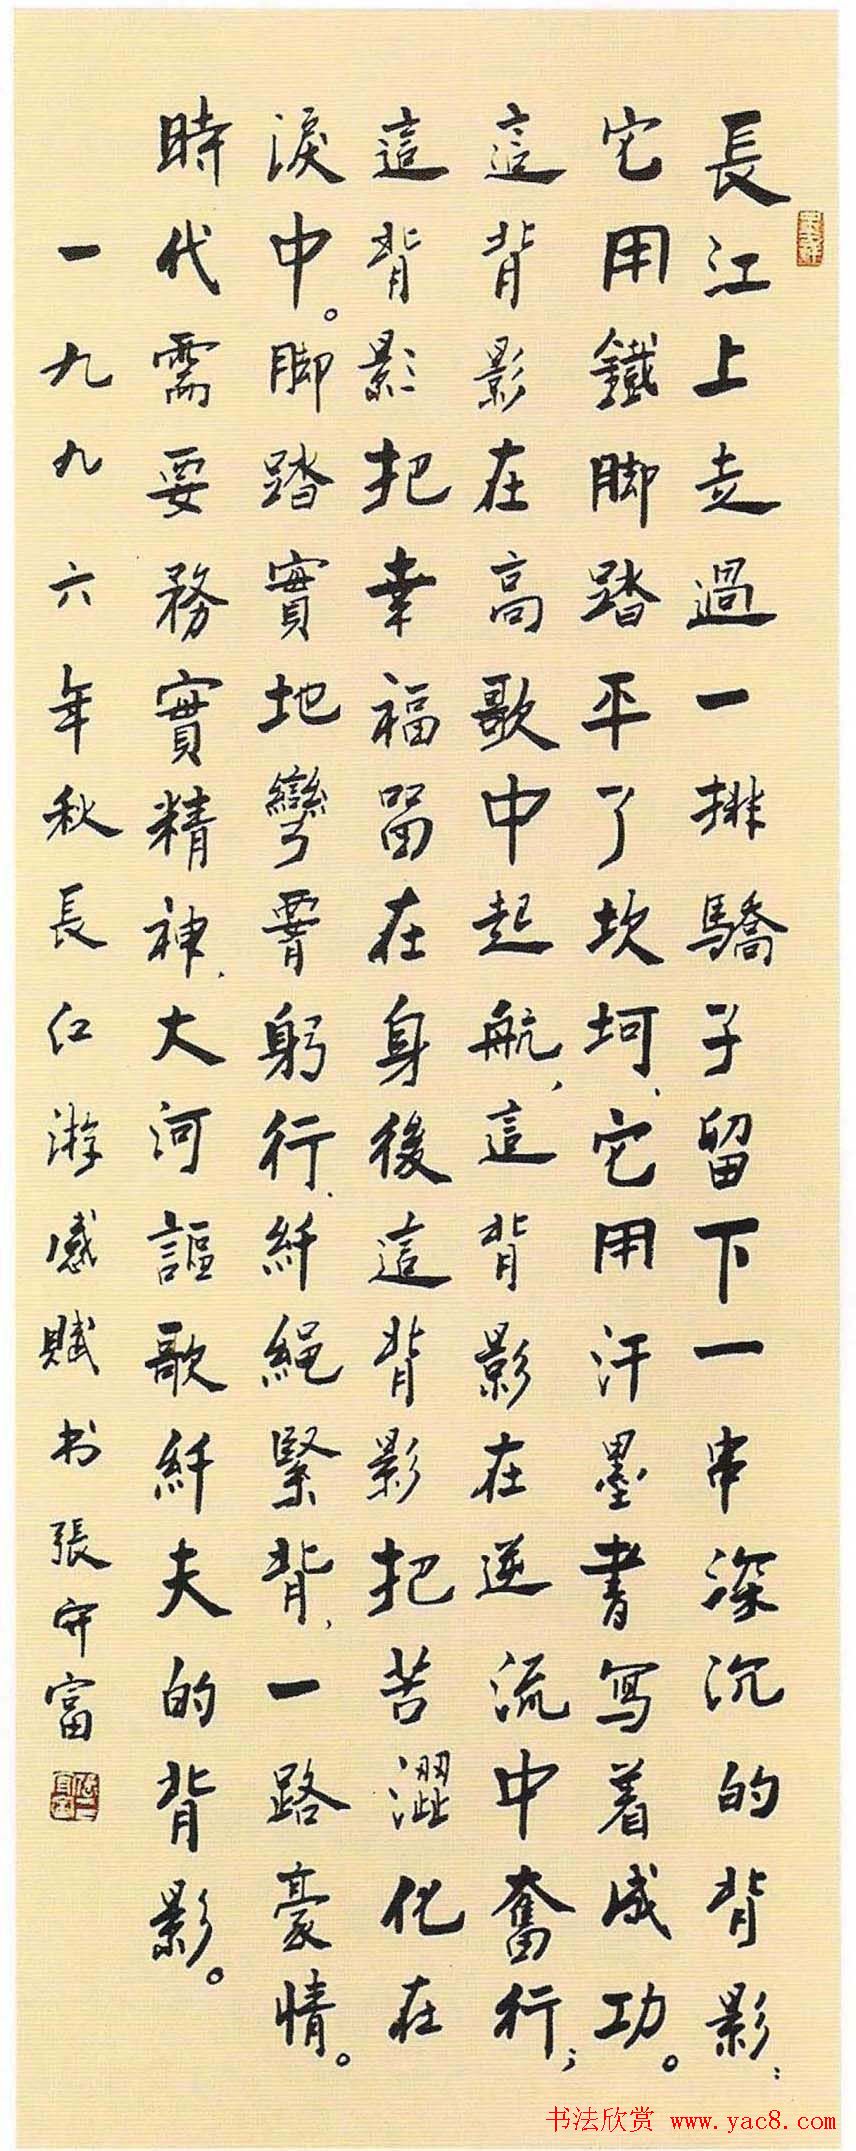 長江上走過一排驕子留下一串深沉的背影：
它用鐵脚踏平了坎坷、它用汗墨書寫着成功。
這背影在高歌中起航，這背影在逆流中奮行；
這背影把幸福留在身後這背影把苦澀化在
淚中。脚踏實地彎腰躬行、紆繩緊背，一路豪情。
時代需要務實精神、大河謳歌紆夫的背影。
一九九六年秋長江游感賦书張守富
书法欣赏 www.yac8.com